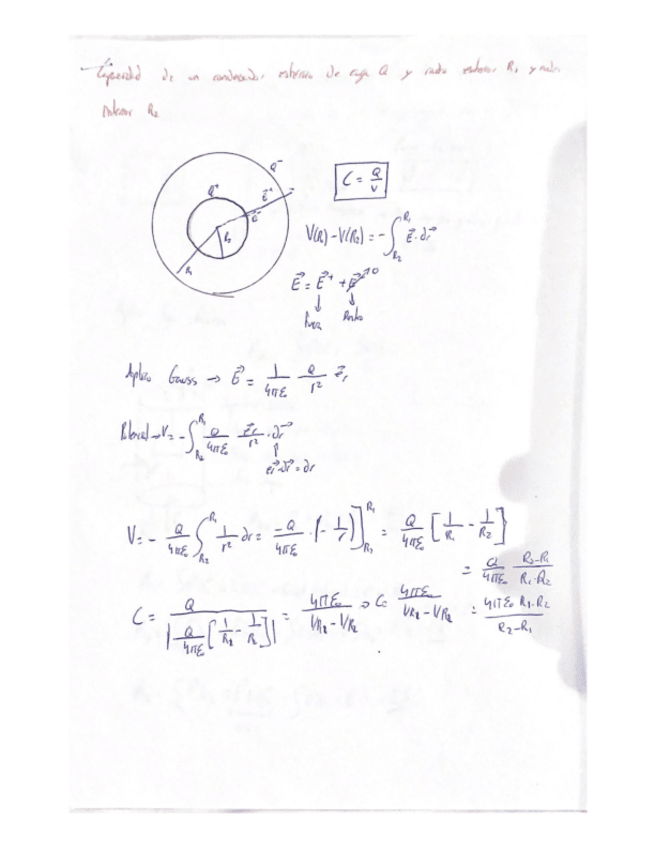 Capacidad de un condensador esférico de carga Q y radio exterior R₁ y radio
interior R₂
Q⁻
Q⁺
E⁺
E⁻
R₂
R₁
C = Q/V
V(R₁) - V(R₂) = - ∫_{R₂}^{R₁} E⃗ · dr⃗
E⃗ = E⃗⁺ + E⃗⁻ → 0
↓ ↓
Aplico Gauss → E⃗ = 1/4πε₀ Q/r² e⃗r
Potencial → V = - ∫_{R₂}^{R₁} Q/4πε₀ e⃗r/r² · dr⃗
e⃗r · dr⃗ = dr
V = - Q/4πε₀ ∫_{R₂}^{R₁} 1/r² dr = -Q/4πε₀ · (-1/r)]_{R₂}^{R₁} = Q/4πε₀ [1/R₁ - 1/R₂]
= Q/4πε₀ R₂-R₁/R₁·R₂
C = Q/|Q/4πε₀ [1/R₁ - 1/R₂]| = 4πε₀/1/R₁ - 1/R₂ → C = 4πε₀/1/R₁ - 1/R₂ = 4πε₀ R₁·R₂/R₂-R₁